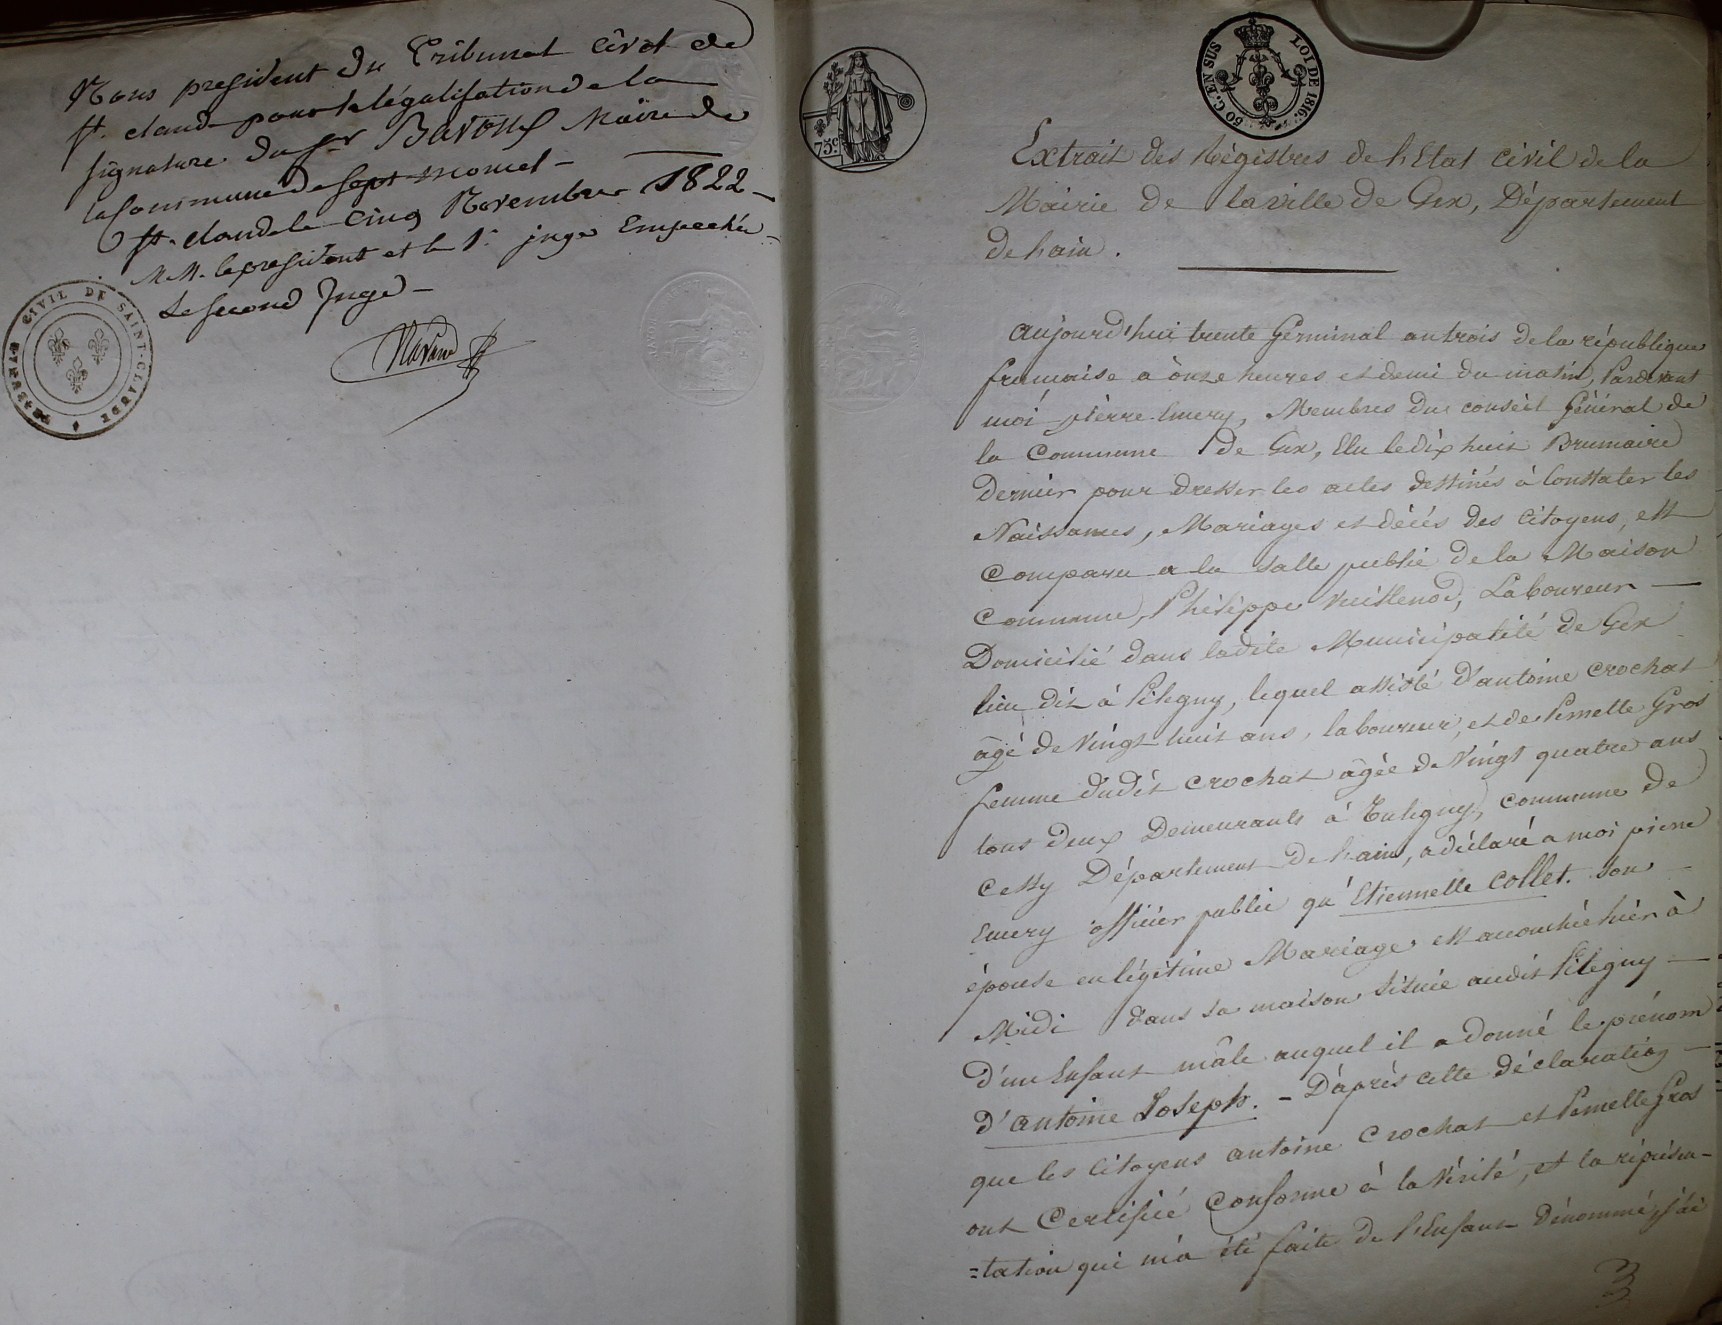 Nous president du Tribunal Civil de
st. claude pour la légalisation de la
signature du sr Mäire de
la Commune de sept moncel -
st. claude le Cinq Novembre 1822 -
M.M. le president et le 1r. juge Empechés -
Le second Juge -
CIVIL DE SAINT-CLAUDE
75 c.
60 C. EN SUS LOI DE 1816.
Extrait des Régistres de L'Etat Civil de la
Mairie de la ville de Gex, Département
de Lain.
Aujourd'hui trente Germinal an trois de la république
francaise à onze heures et demi du matin, Pardevant
moi pierre Emery, Membres du conseil Général de
la Commune de Gex, Elu le dix huit Brumaire
Dernier pour dresser les actes destinés à Constater les
Naissances, Mariages et décés des Citoyens, est
Comparu a la salle public de la Maison
Commune, Philippe Vuillenod, Laboureur —
Domicilié dans ladite Municipalité de Gex
lieu dit à Pitegny, lequel assisté d'antoine Crochat
âgé de Vingt huit ans, laboureur, et de Pernette Gros
femme dudit Crochat âgée de Vingt quatre ans
tous deux Demeurants à Tutegny, commune de
Cessy Département de Lain, a déclaré a moi pierre
Emery officier public qu'Etiennette Collet. son
épouse en légitime Mariage est accouchée hier à
Midi dans sa maison située audit Pitegny —
d'un Enfant mâle auquel il a donné le prénom
d'antoine Joseph. - D'après cette déclaration —
que les Citoyens antoine Crochat et Pernette Gros
ont Certifié Conforme à la Vérité, et la réprésen-
=tation qui m'a été faite de l'Enfant dénommé, j'ai